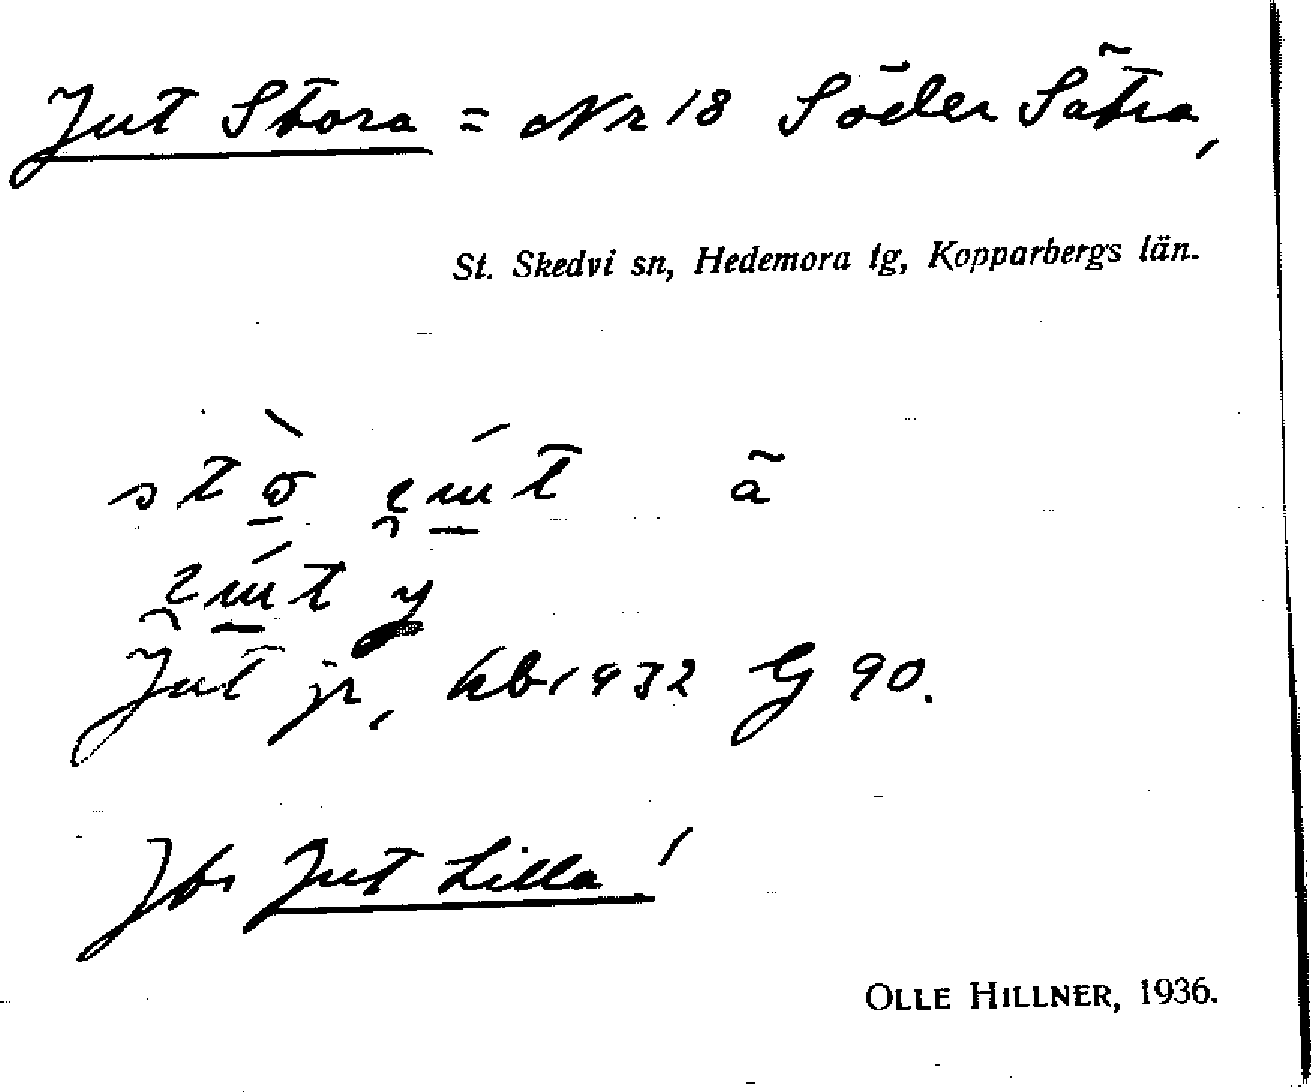 Jut Stora = Nr 18 Söder Sätra,
St. Skedvi sn, Hedemora tg, Kopparbergs län.
Jut jr, kbr 1932 G 90.
Jfr Jut Lilla!
OLLE HILLNER, 1936.